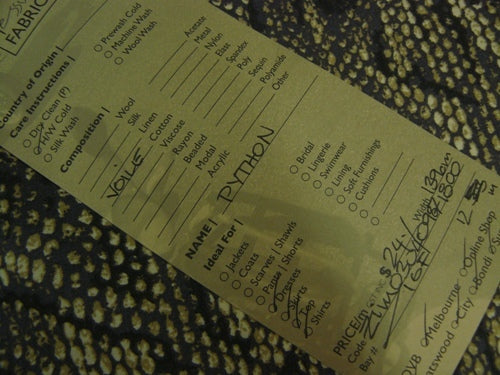 FABRIC
Country of Origin |
Care Instructions |
Dry Clean (P)
H/W Cold
Silk Wash
Prewash Cold
Machine Wash
Wool Wash
Composition |
Wool
Silk
Linen
Cotton
Viscose
Rayon
Beaded
Modal
Acrylic
Acetate
Metal
Nylon
Elast
Spandex
Poly
Sequin
Polyamide
Other
VOILE
NAME | PYTHON
Ideal For |
Jackets
Coats
Scarves | Shawls
Pants | Shorts
Dresses
Skirts
Top
Shirts
Bridal
Lingerie
Swimwear
Lining
Soft Furnishings
Cushions
PRICE/m $24/ Width 139cm
Code
Bay #
Melbourne
Online Shop
City
Bondi